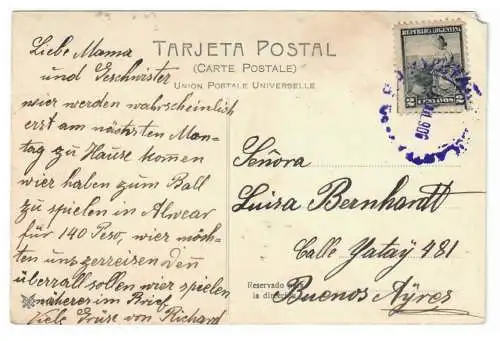 Liebe Mama
und Geschwister
wier werden wahrscheinlich
erst am nächsten Mon-
tag zu Hause komen
wier haben zum Ball
zu spielen in Alwear
für 140 Peso, wier möch-
ten uns zerreisen den
überall sollen wier spielen
näheres im Brief.
Viele Grüse von Richard
TARJETA POSTAL
(CARTE POSTALE)
UNION POSTALE UNIVERSELLE
REPUBLICA ARGENTINA
2 CENTAVOS 2
906
Señora
Luisa Bernhardt
Calle Yatay 481
Reservado
la
Buenos Ayres